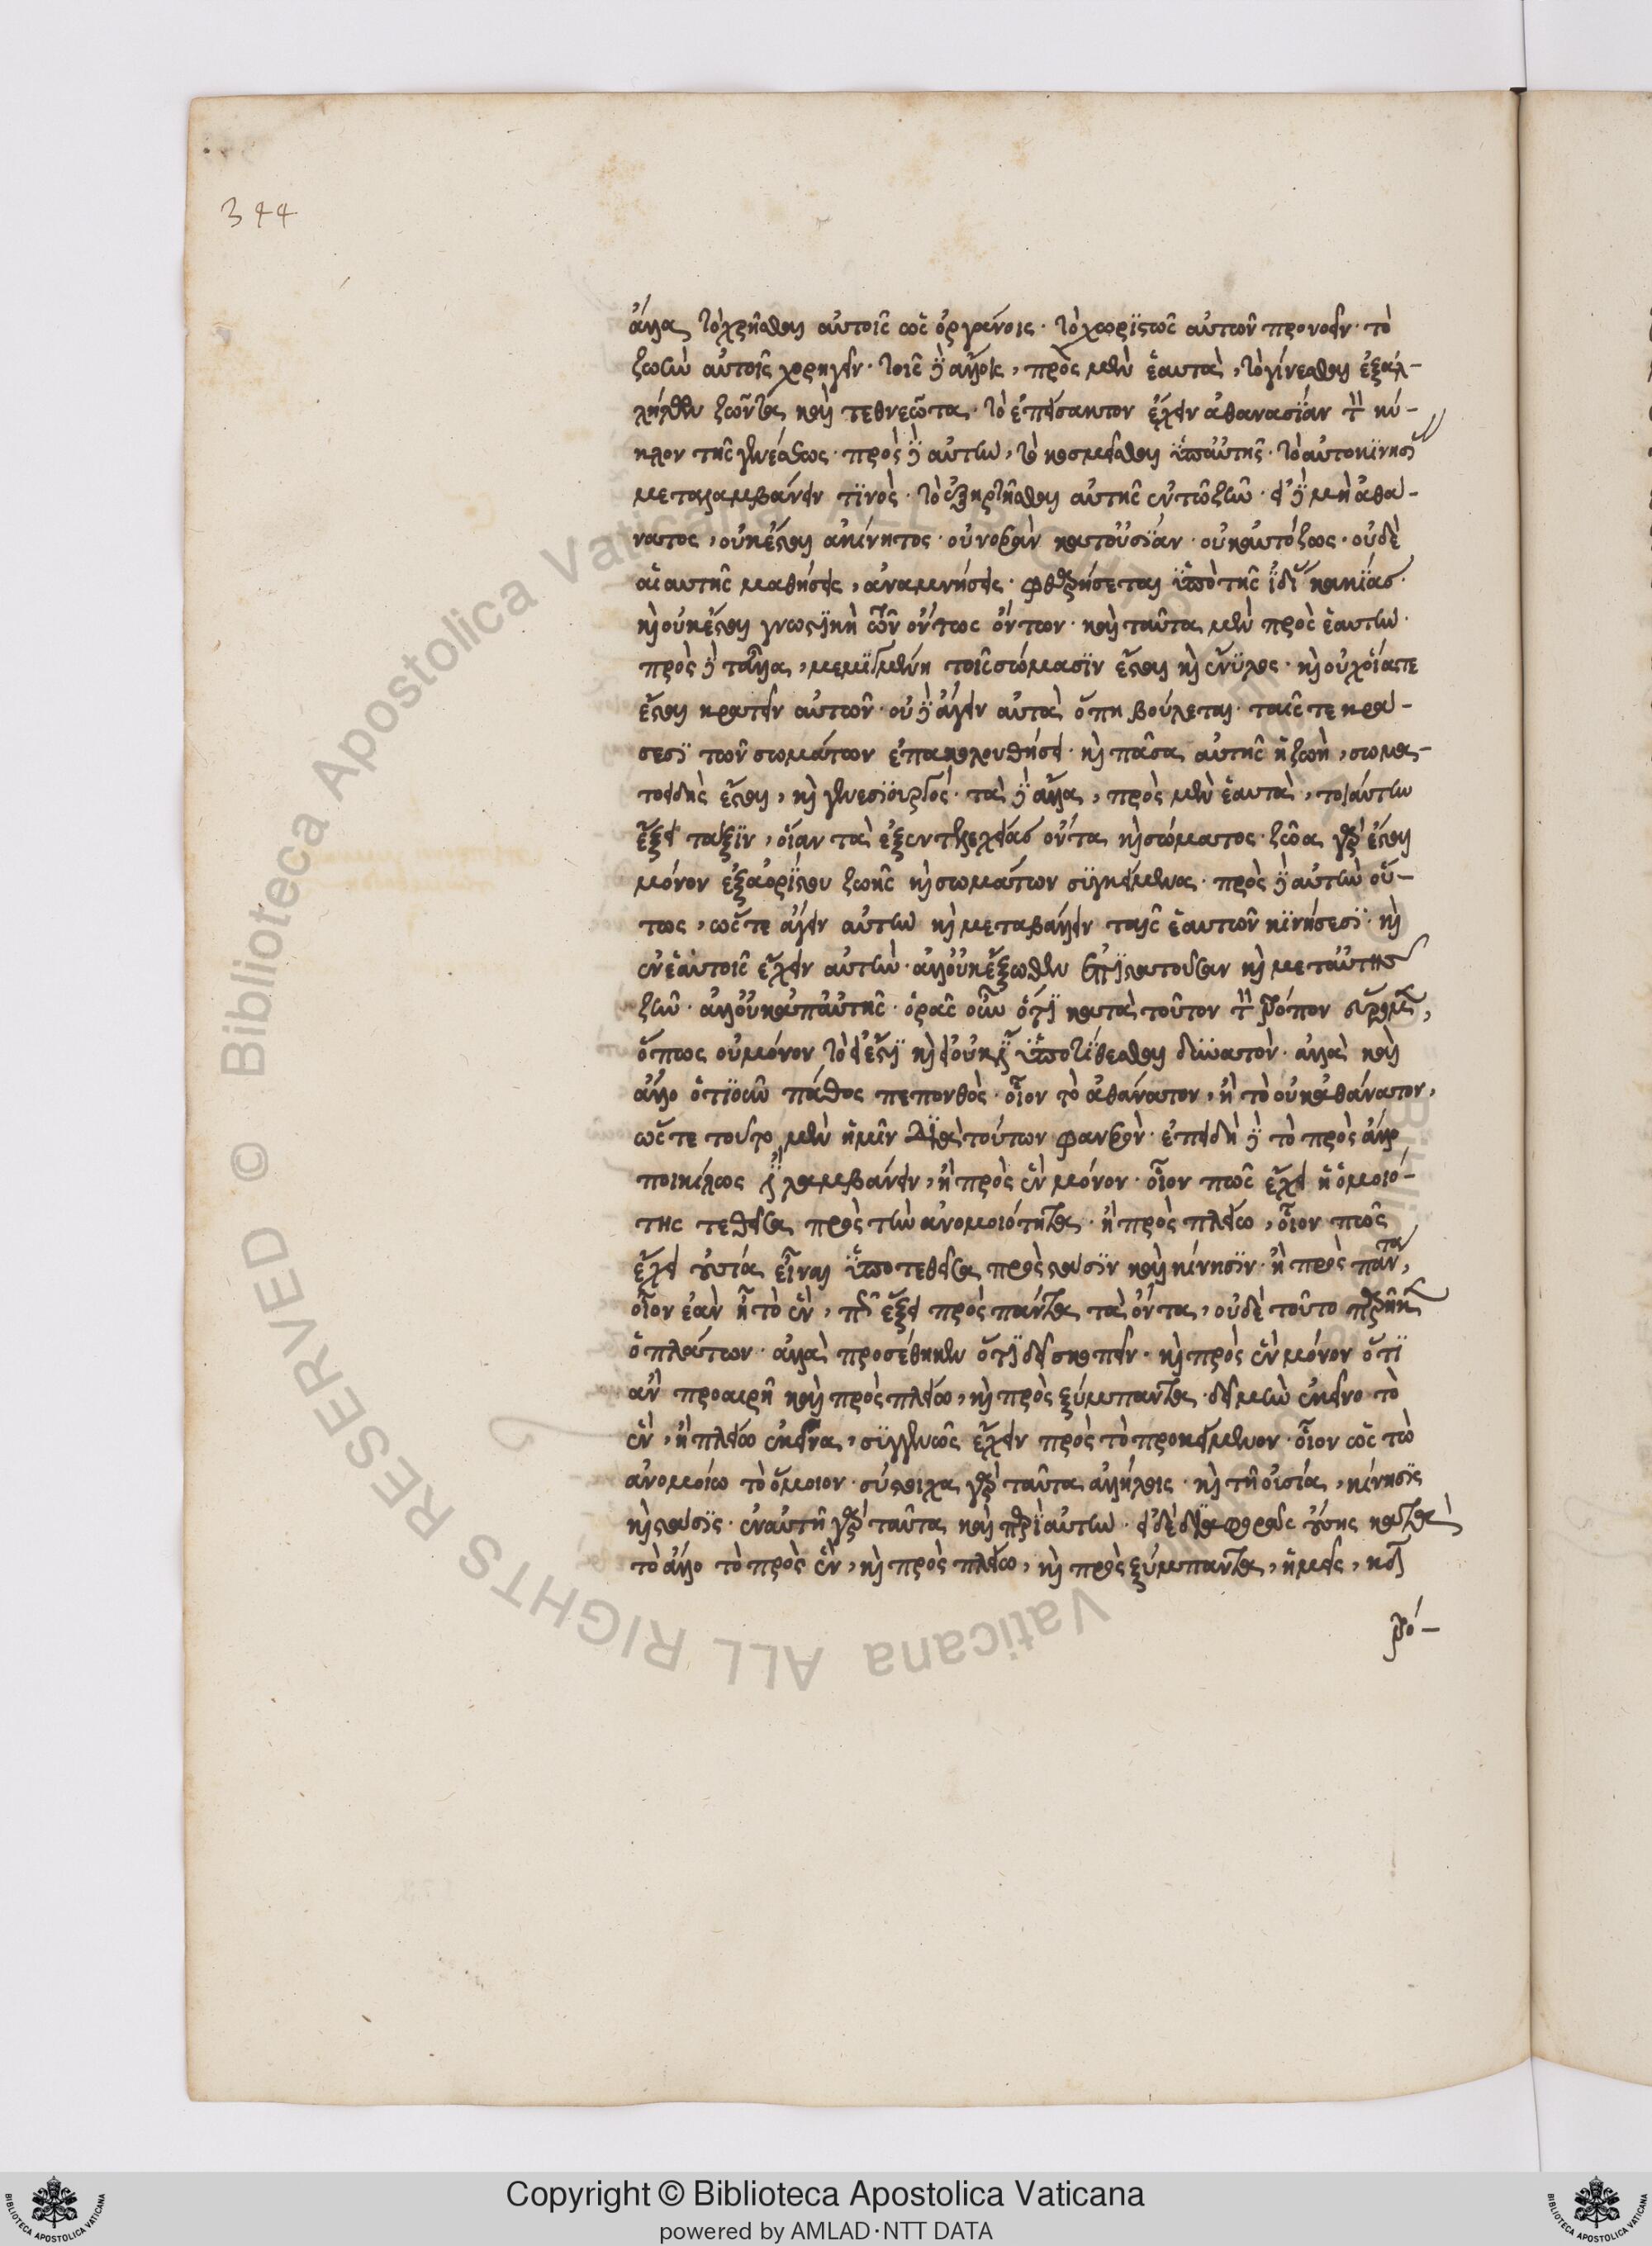 344
ἄλλα, τὸ χρῆσθαι αὐτοῖς ὡς ὀργάνοις· τὸ χωριστῶς αὐτῶν προνοεῖν· τὸ
ζωὴν αὐτοῖς χορηγεῖν· τοῖς δὲ ἄλλοις, πρὸς μὲν ἑαυτὰ, τὸ γίνεσθαι ἐξ ἀλ-
λήλων ζῶντα καὶ τεθνεῶτα· τὸ ἐπείσακτον ἔχειν ἀθανασίαν τὸν κύ-
κλον τῆς γενέσεως· πρὸς δὲ αὐτὴν, τὸ κοσμεῖσθαι ὑπ' αὐτῆς· τὸ αὐτοκινησί
μεταλαμβάνειν τινὸς· τὸ ἐξηρτῆσθαι αὐτῆς ἐν τῶ ζῆν· εἰ δὲ μὴ ἀθά-
νατος, οὐκ ἔσται ἀκίνητος· οὐ νοερὰν κατ' οὐσίαν· οὐκ αὐτόζως· οὐδὲ
αἱ αὐτῆς μαθήσεις, ἀναμνήσεις· φθαρήσεται ὑπὸ τῆς ἰδί κακίας·
καὶ οὐκ ἔσται γνωστικὴ τῶν ὄντως ὄντων· καὶ ταῦτα μὲν πρὸς ἑαυτὴν·
πρὸς δὲ τἄλλα, μεμιγμένη τοῖς σώμασιν ἔσται καὶ ἔνυλος· καὶ οὐχ οἵα τε
ἔσται κρατεῖν αὐτῶν· οὐδὲ ἄγειν αὐτὰ ὅπη βούλεται· ταῖς τε κρά-
σεσι τῶν σωμάτων ἐπακολουθήσει· καὶ πᾶσα αὐτῆς ἡ ζωὴ, σωμα-
τοειδὴς ἔσται, καὶ γενεσιουργός· τὰ δὲ ἄλλα, πρὸς μὲν ἑαυτὰ, τοιαύτην
ἕξει τάξιν, οἵαν τὰ ἐξ ἐντελεχείας ὄντα καὶ σώματος· ζῶα γὰρ ἔσται
μόνον ἐξ ἀορίστου ζωῆς καὶ σωμάτων συγκείμενα· πρὸς δὲ αὐτὴν οὕ-
τως, ὥστε ἄγειν αὐτὴν καὶ μεταβάλλειν ταῖς ἑαυτῶν κινήσεσι· καὶ
ἐν ἑαυτοῖς ἔχειν αὐτὴν· ἀλλ' οὐκ ἔξωθεν ἐπιστατοῦσαν καὶ μετ' αὐτῆς
ζῆν· ἀλλ' οὐκ ἀπ' αὐτῆς· ὁρᾶς οὖν ὅτι κατὰ τοῦτον τὸν τρόπον
ὅπως οὐ μόνον τὸ εἰ ἔστι καὶ εἰ οὐκ ἔστι ὑποτίθεσθαι δυνατὸν· ἀλλὰ καὶ
ἄλλο ὁτιοῦν πάθος πεπονθὸς· οἷον τὸ ἀθάνατον, ἢ τὸ οὐκ ἀθάνατον,
ὥστε τοῦτο μὲν ἡμῖν διὰ τούτων φανερὸν· ἐπειδὴ δὲ τὸ πρὸς ἄλλο
ποικίλως ἔστι λαμβάνειν, ἢ πρὸς ἓν μόνον· οἷον πῶς ἔχει ἡ ὁμοιό-
της τεθεῖσα πρὸς τὴν ἀνομοιότητα· ἢ πρὸς πλείω, οἷον πῶς
ἔχει οὐσία εἶναι ὑποτεθεῖσα πρὸς στάσιν καὶ κίνησιν· ἢ πρὸς πάντα,
οἷον ἐὰν ἦ τὸ ἓν, πῶς ἕξει πρὸς πάντα τὰ ὄντα, οὐδὲ τοῦτο παρῆκ
ὁ πλάτων· ἀλλὰ προσέθηκεν ὅτι δεῖ σκοπεῖν· καὶ πρὸς ἓν μόνον ὅτι
ἂν προαιρῆ καὶ πρὸς πλείω, καὶ πρὸς ξύμπαντα· δεῖ μὴν ἐκεῖνο τὸ
ἓν, ἢ πλείω ἐκεῖνα, συγγενῶς ἔχειν πρὸς τὸ προκείμενον· οἷον ὡς τῶ
ἀνομοίω τὸ ὅμοιον· σύστοιχα γὰρ ταῦτα ἀλλήλοις· καὶ τῆ οὐσία, κίνησις
καὶ στάσις· ἐν αὐτῆ γὰρ ταῦτα καὶ περὶ αὐτὴν· εἰ δὲ διαφορᾶς οὔσης κατὰ
τὸ ἄλλο τὸ πρὸς ἓν, καὶ πρὸς πλείω, καὶ πρὸς ξύμπαντα, ἡμεῖς, κατ
τρό-
Copyright © Biblioteca Apostolica Vaticana
powered by AMLAD·NTT DATA
© Biblioteca Apostolica Vaticana ALL RIGHTS RESERVED